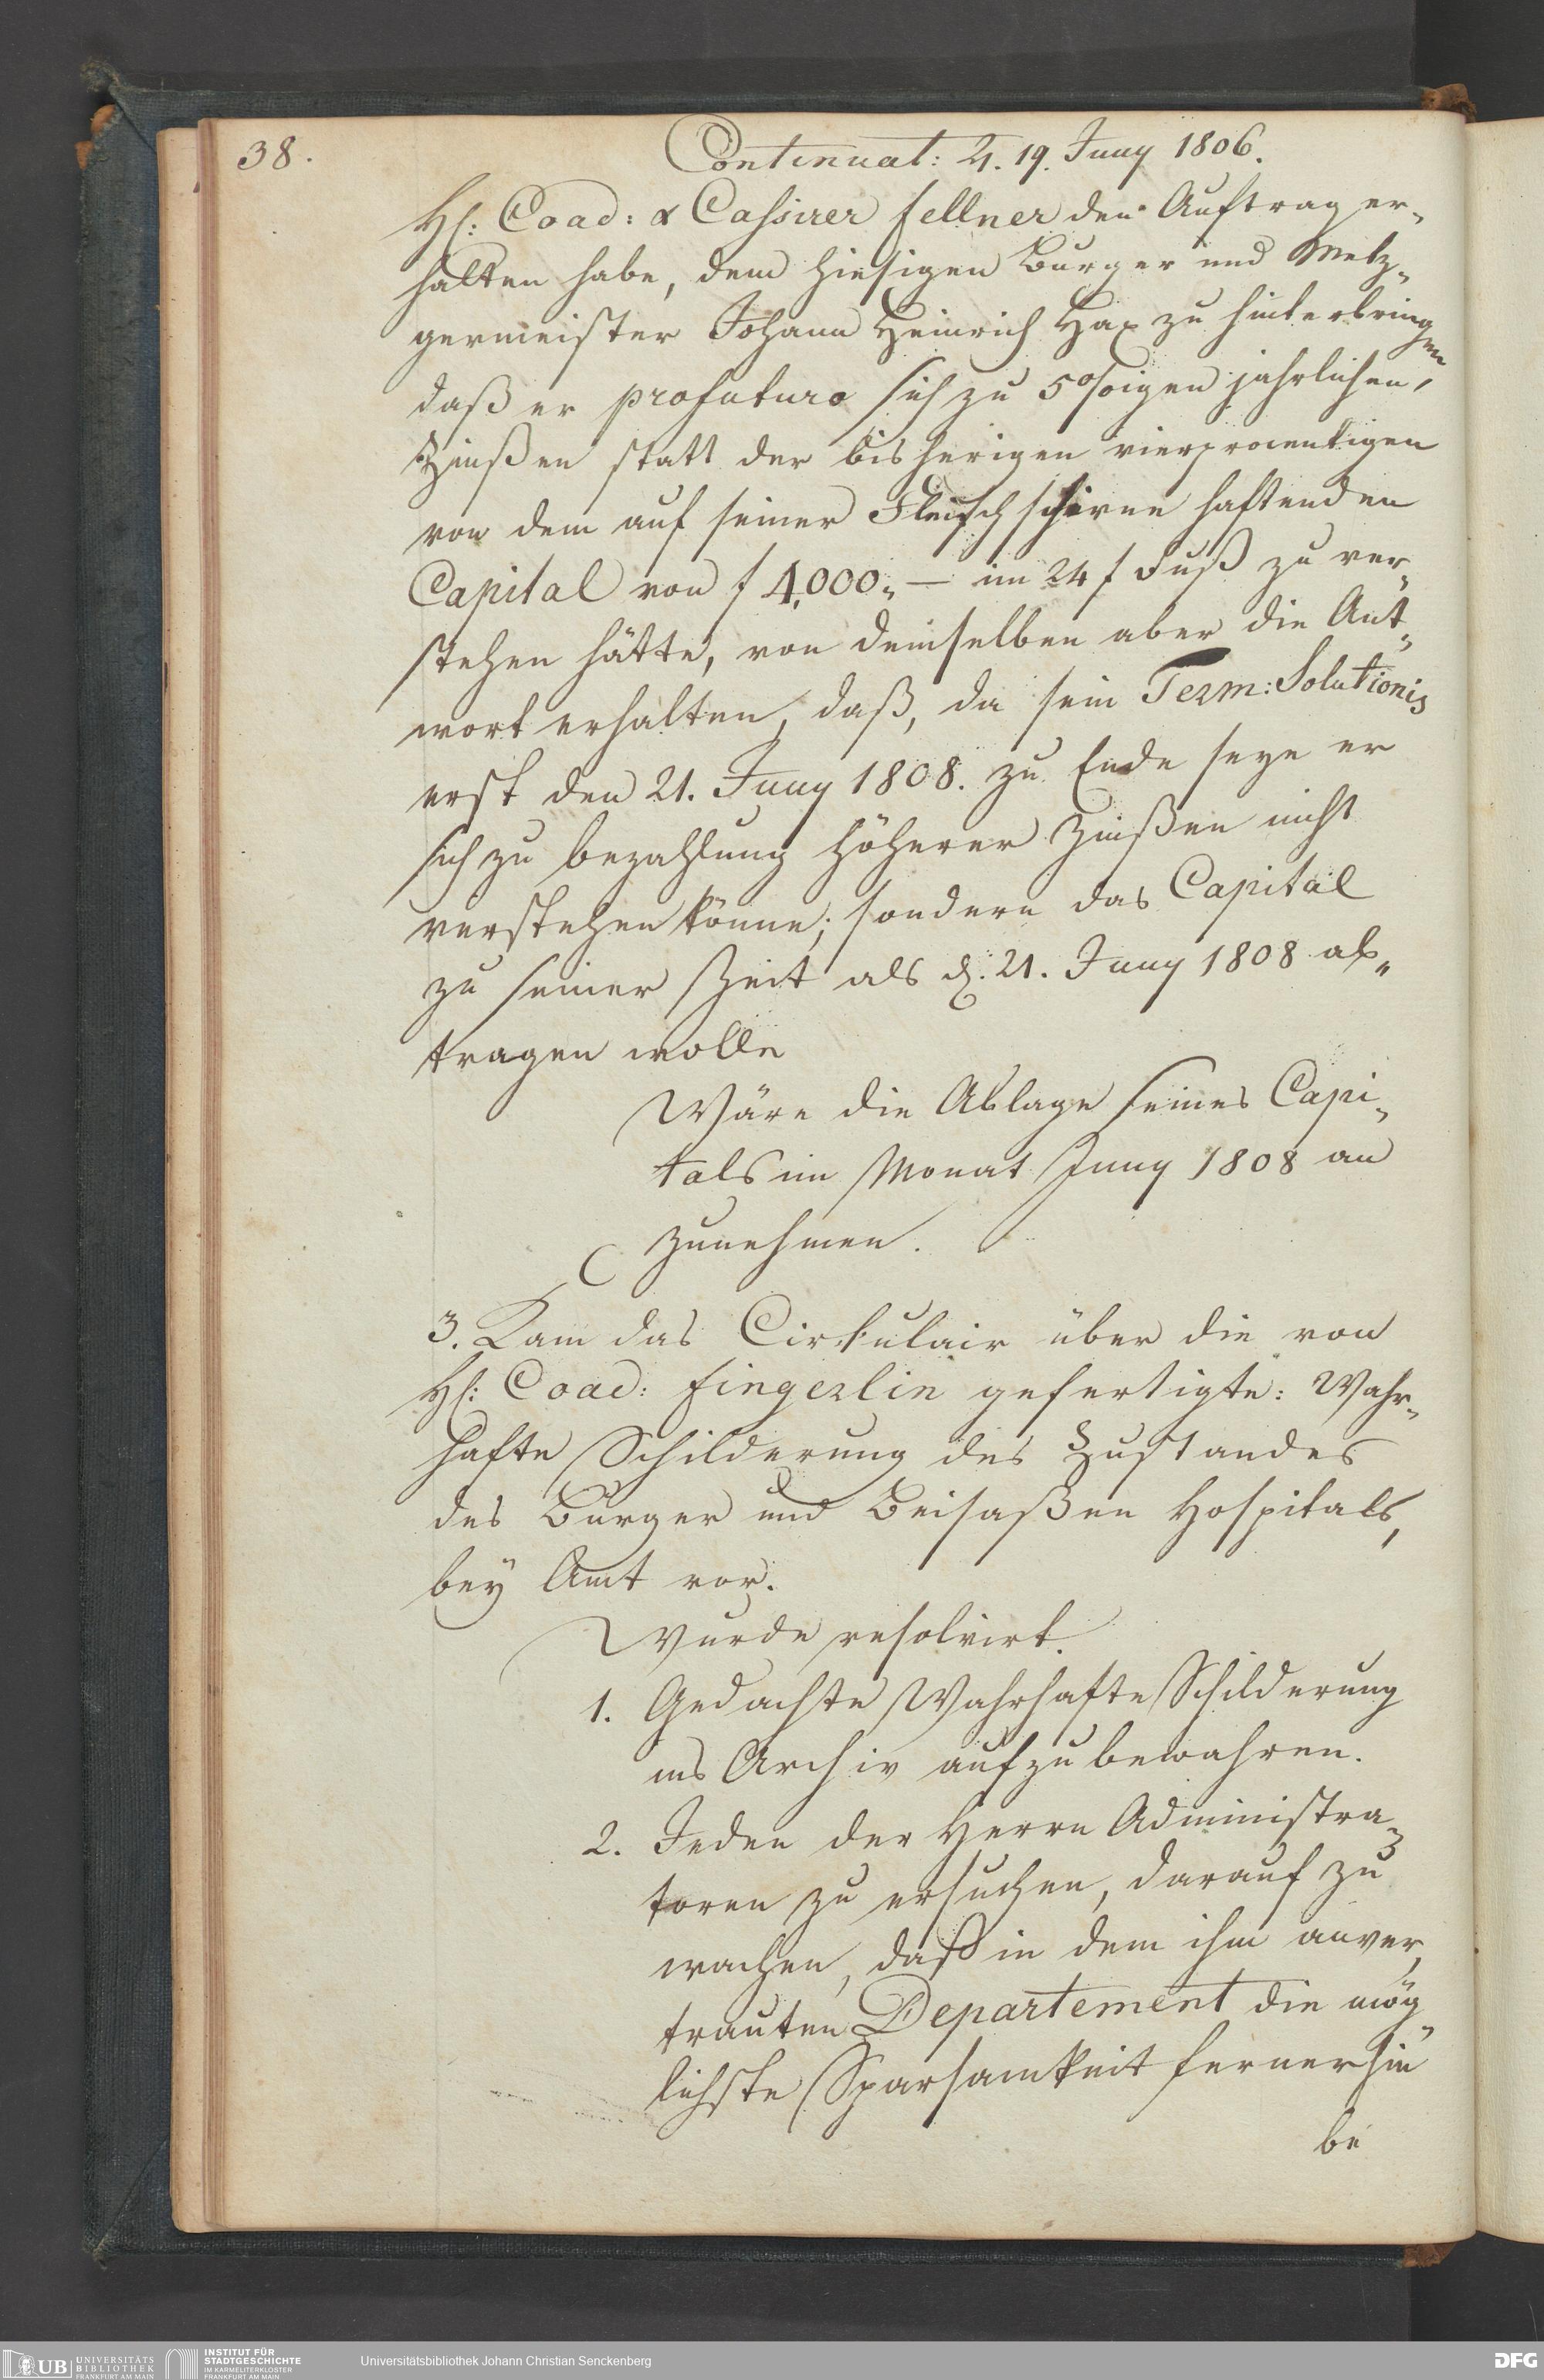 38.
Continuat: 4. 19. Juny 1806.
H: Coad: & Cassirer Fellner den Auftrag er„
halten habe, dem hiesigen Burger und Metz„
germeister Johann Heinrich Hax zu hinterbringen
daß er pro futuro sich zu 5%igen jahrlichen,
Zinßen statt der bisherigen vierprocentigen
von dem auf seiner Fleischschirne haftenden
Capital von f 4,000.„ — im 24 f Fuß zu ver„
stehen hätte, von demselben aber die Ant„
wort erhalten, daß, da sein Term: Solutionis
erst den 21. Juny 1808. zu Ende seye er
sich zu bezahlung höherer Zinßen nicht
verstehen könne; sondern das Capital
zu seiner Zeit als d. 21. Juny 1808 ab„
tragen wolle
Wäre die Ablage seines Capi„
tals im Monat Juny 1808 an
zunehmen.
3. Kam das Cirkulair über die von
H: Coad: Fingerlin gefertigte: Wahr„
hafte Schilderung des Zustandes
des Bürger und Beisaßen Hospitals,
bey Amt vor.
Wurde resolvirt.
1. Gedachte Wahrhafte Schilderung
ins Archiv aufzubewahren.
2. Jeden der Herrn Administra„
toren zu ersuchen, darauf zu
wachen, daß in dem ihm anver„
trauten Departement die mög„
lichste Sparsamkeit fernerhin
be
UB UNIVERSITÄTS
BIBLIOTHEK
FRANKFURT AM MAIN
INSTITUT FÜR
STADTGESCHICHTE
IM KARMELITERKLOSTER
FRANKFURT AM MAIN
Universitätsbibliothek Johann Christian Senckenberg
DFG